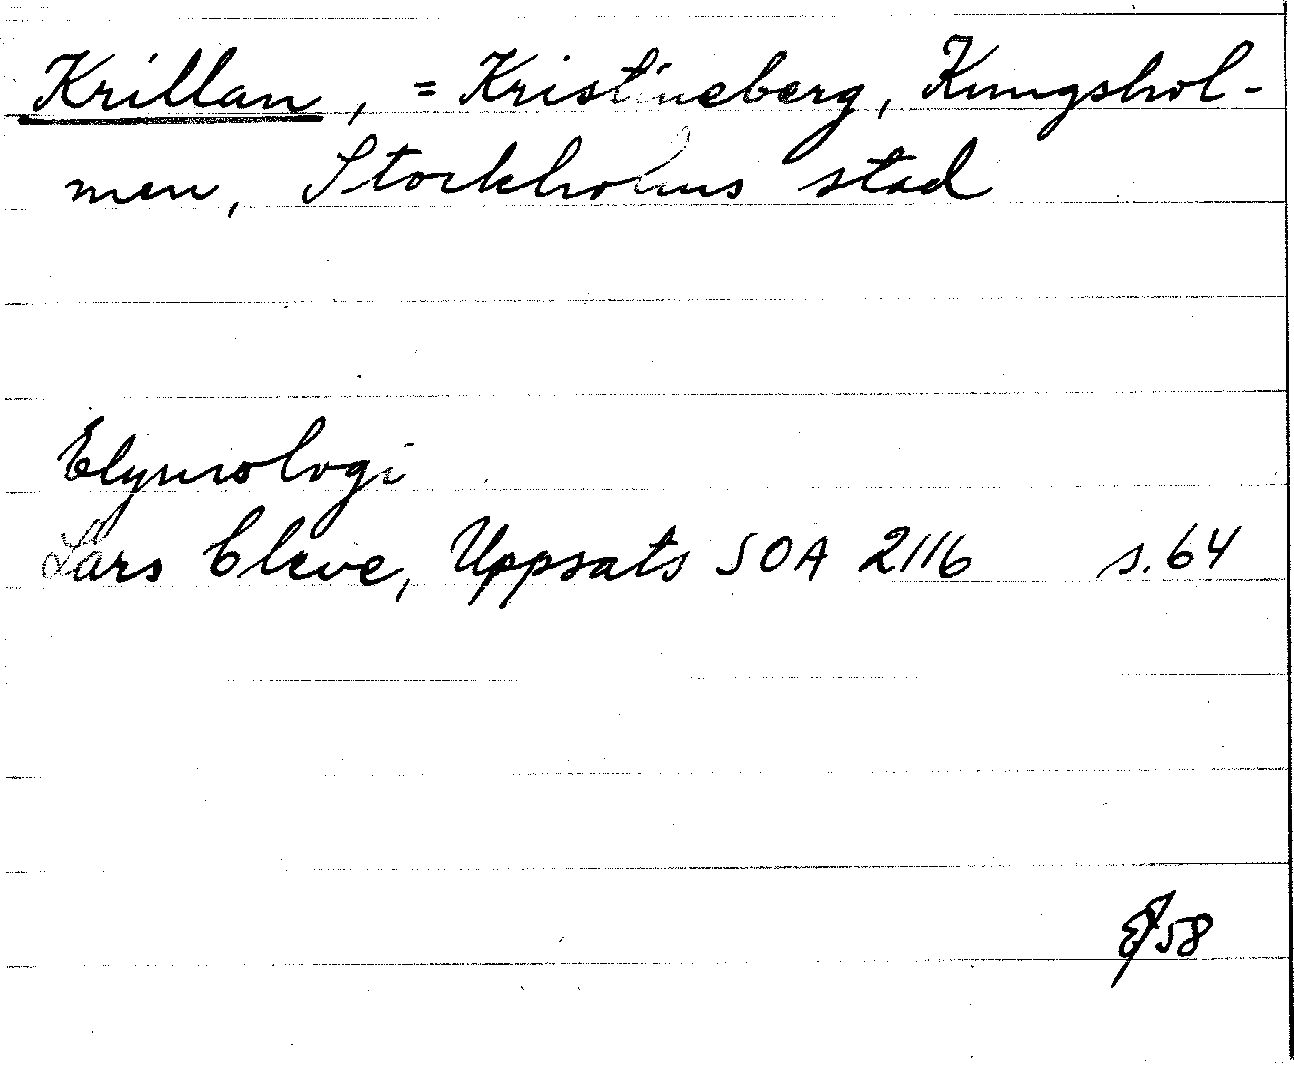 Krillan, = Kristineberg, Kungshol-
men, Stockholms stad
Etymologi
Lars Cleve, Uppsats SOA 2116 s. 64
58